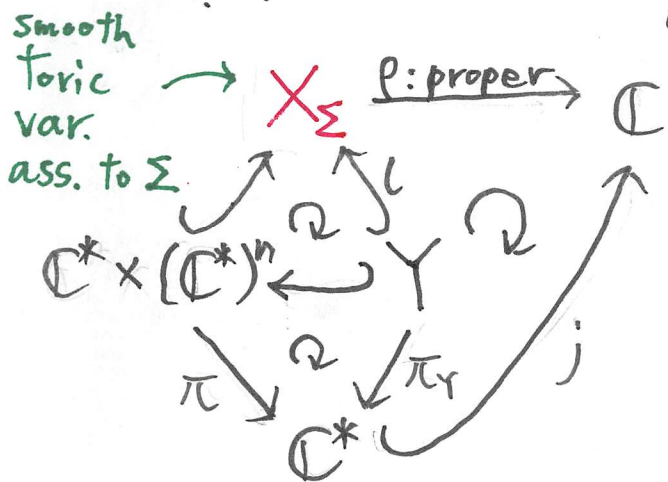 smooth
toric
var.
ass. to Σ
X_Σ
ρ: proper
ℂ
ι
ℂ* × (ℂ*)ⁿ
Y
π
π_Y
j
ℂ*